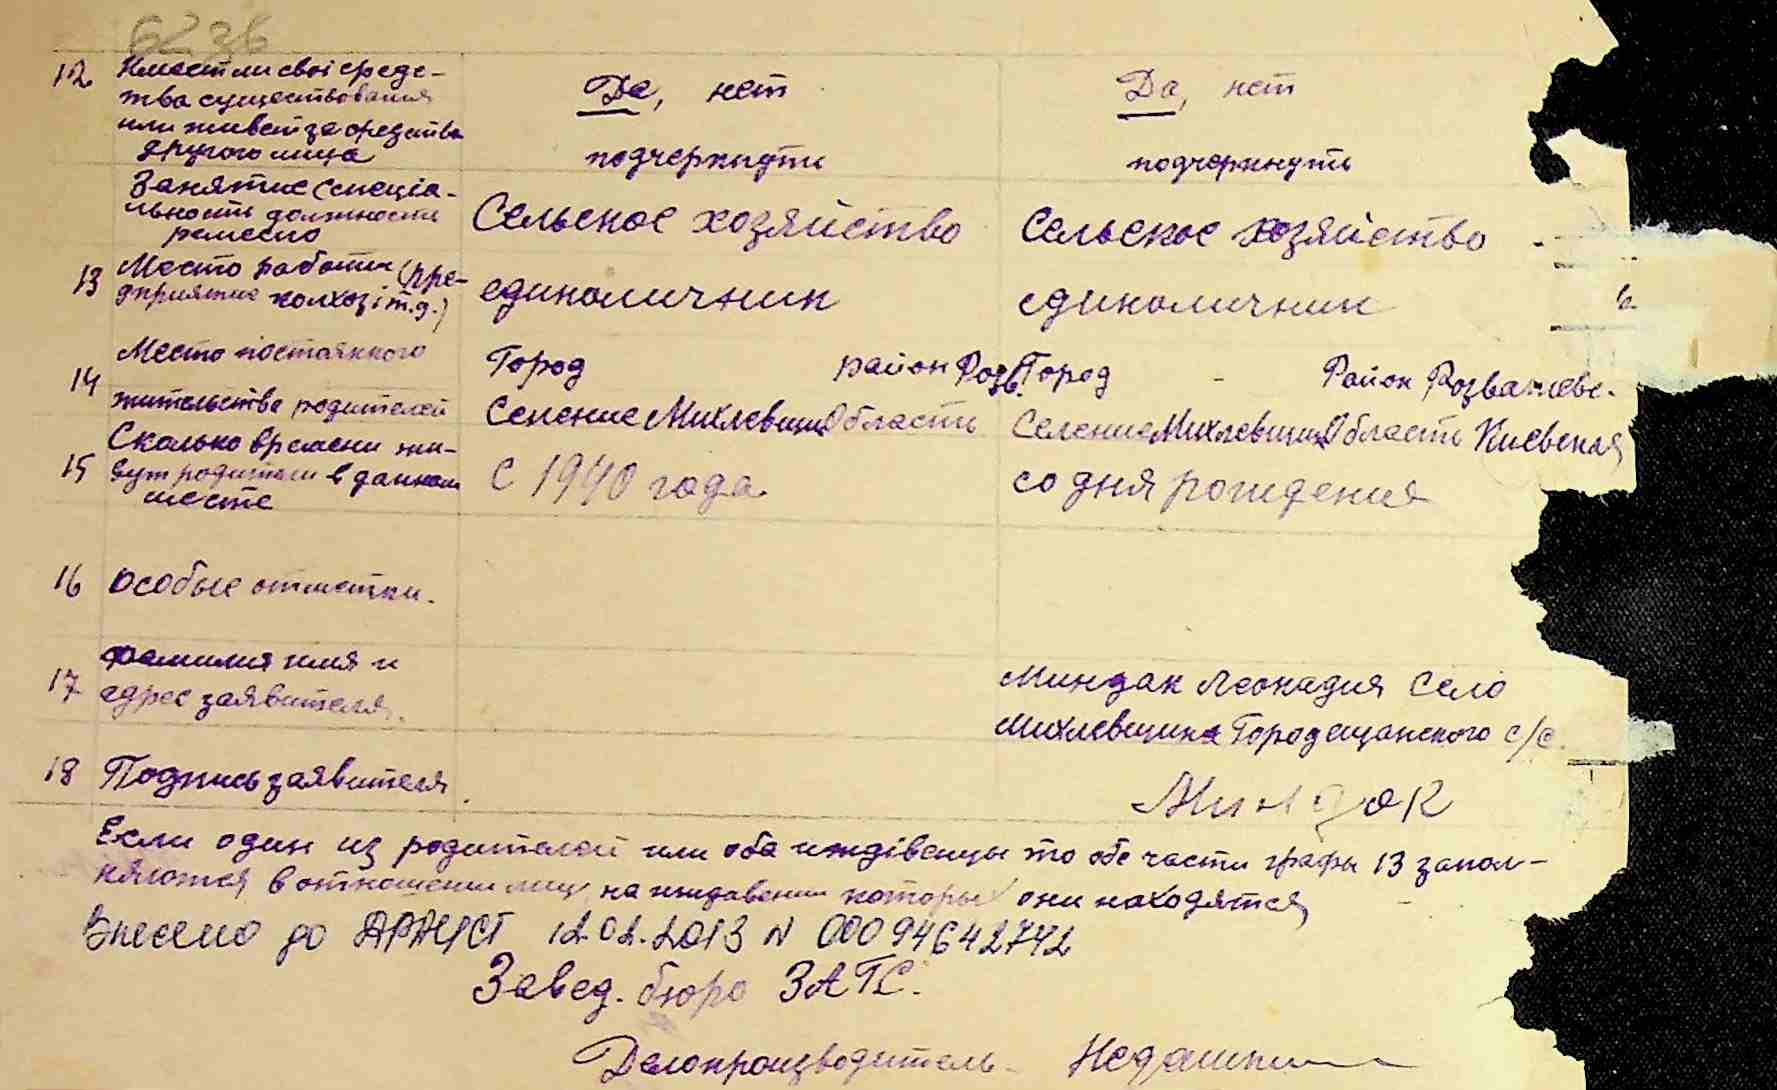 6236
12 Имеет ли свої средс- Да, нет Да, нет
тва существования
или живет за средства подчеркнути подчеркнуть
другого лица
Занятие (спеціа-
льность должность Сельское хозяйство Сельское хозяйство
ремесло
13 Место работи (пре- единоличник единоличник
дприятие колхоз і т.д.)
14 Место постоянного Город район Розв. Город - Район Розважевс.
жительства родителей Селение Михлевщин Область Селение Михлевщин Область Киевская
15 Сколько времени жи- С 1940 года со дня рождения
вут родители в данном
месте
16 особые отметки.
17 фамилия имя и Миндак Леонадия село
адрес заявителя. Михлевщина Городещанского с/с.
18 Подпись заявителя. Миндак
Если один из родителей или оба иждівенцы то обе части графы 13 запол-
няются в отношении лиц, на иждивении которых они находятся
Внесено до ДРАЦСГ 12.02.2013 N 00094642742
Завед. бюро ЗАГС.
Делопроизводитель -